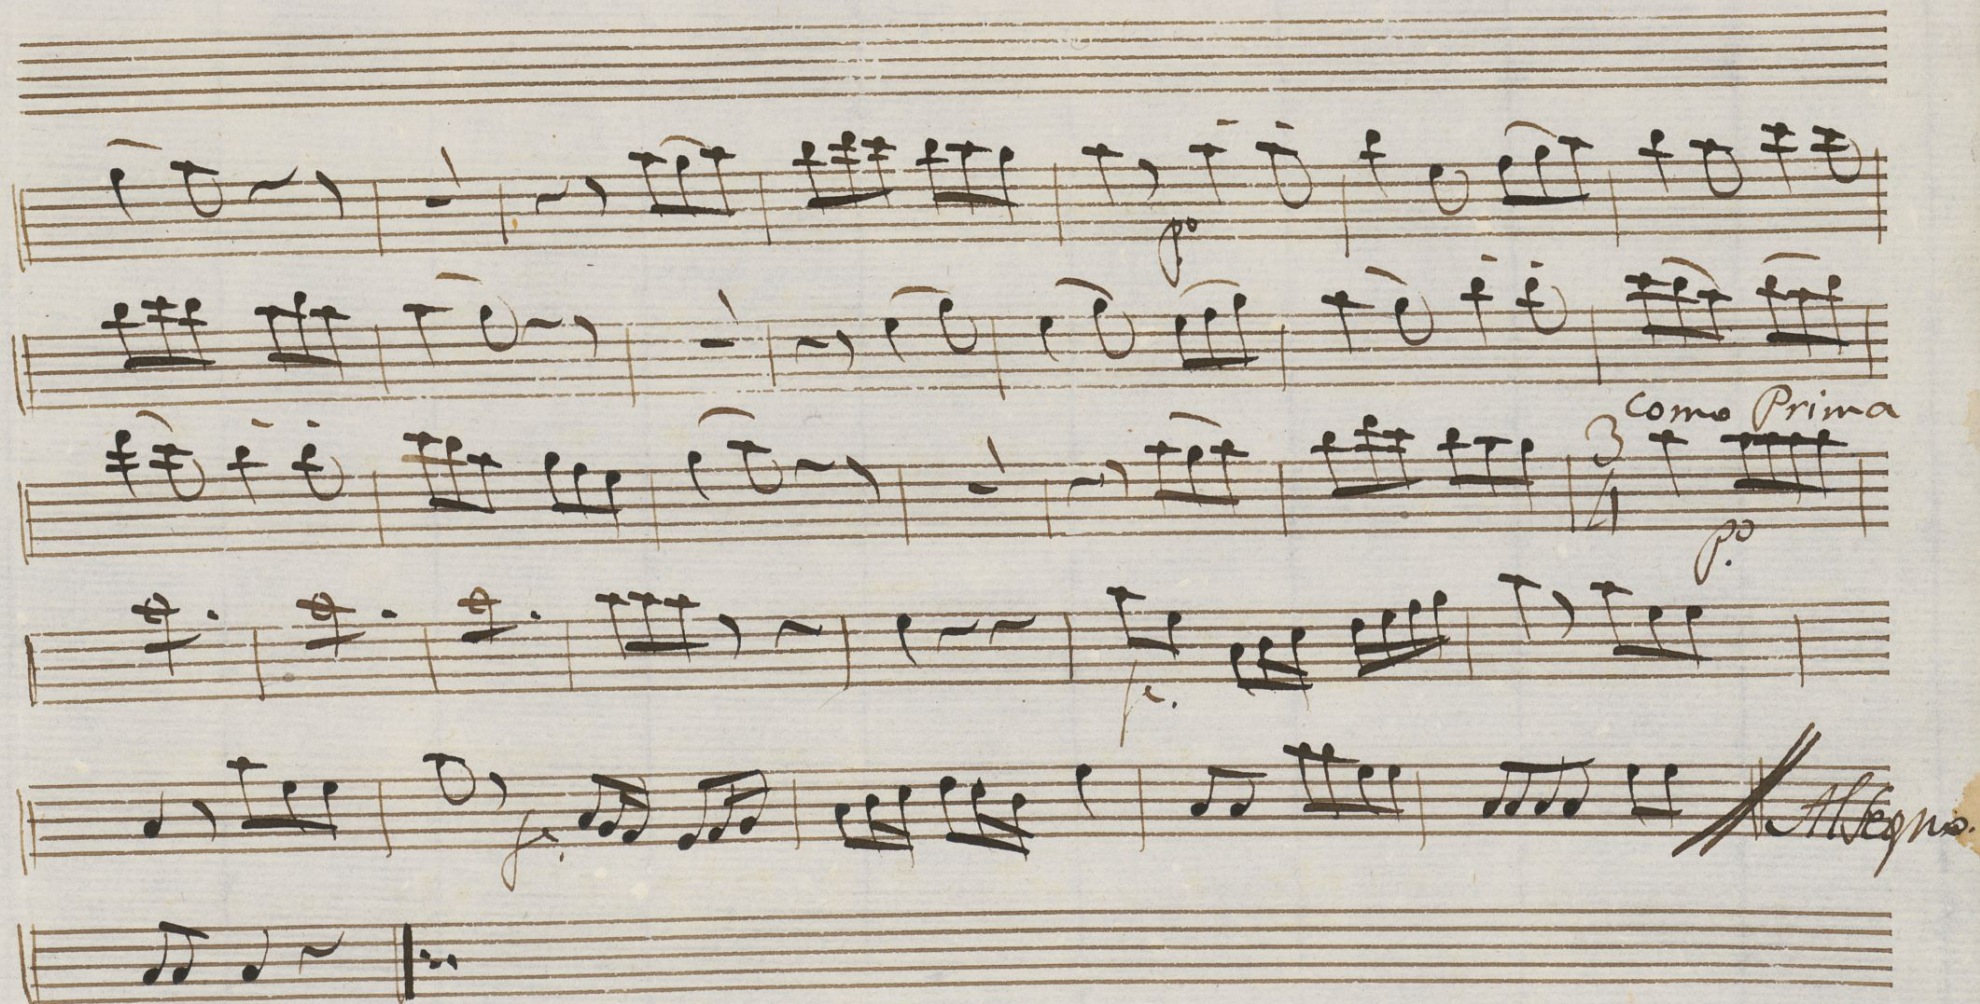 p.º
Como Prima
3
4
p.º
f.
f.
Al Segno.